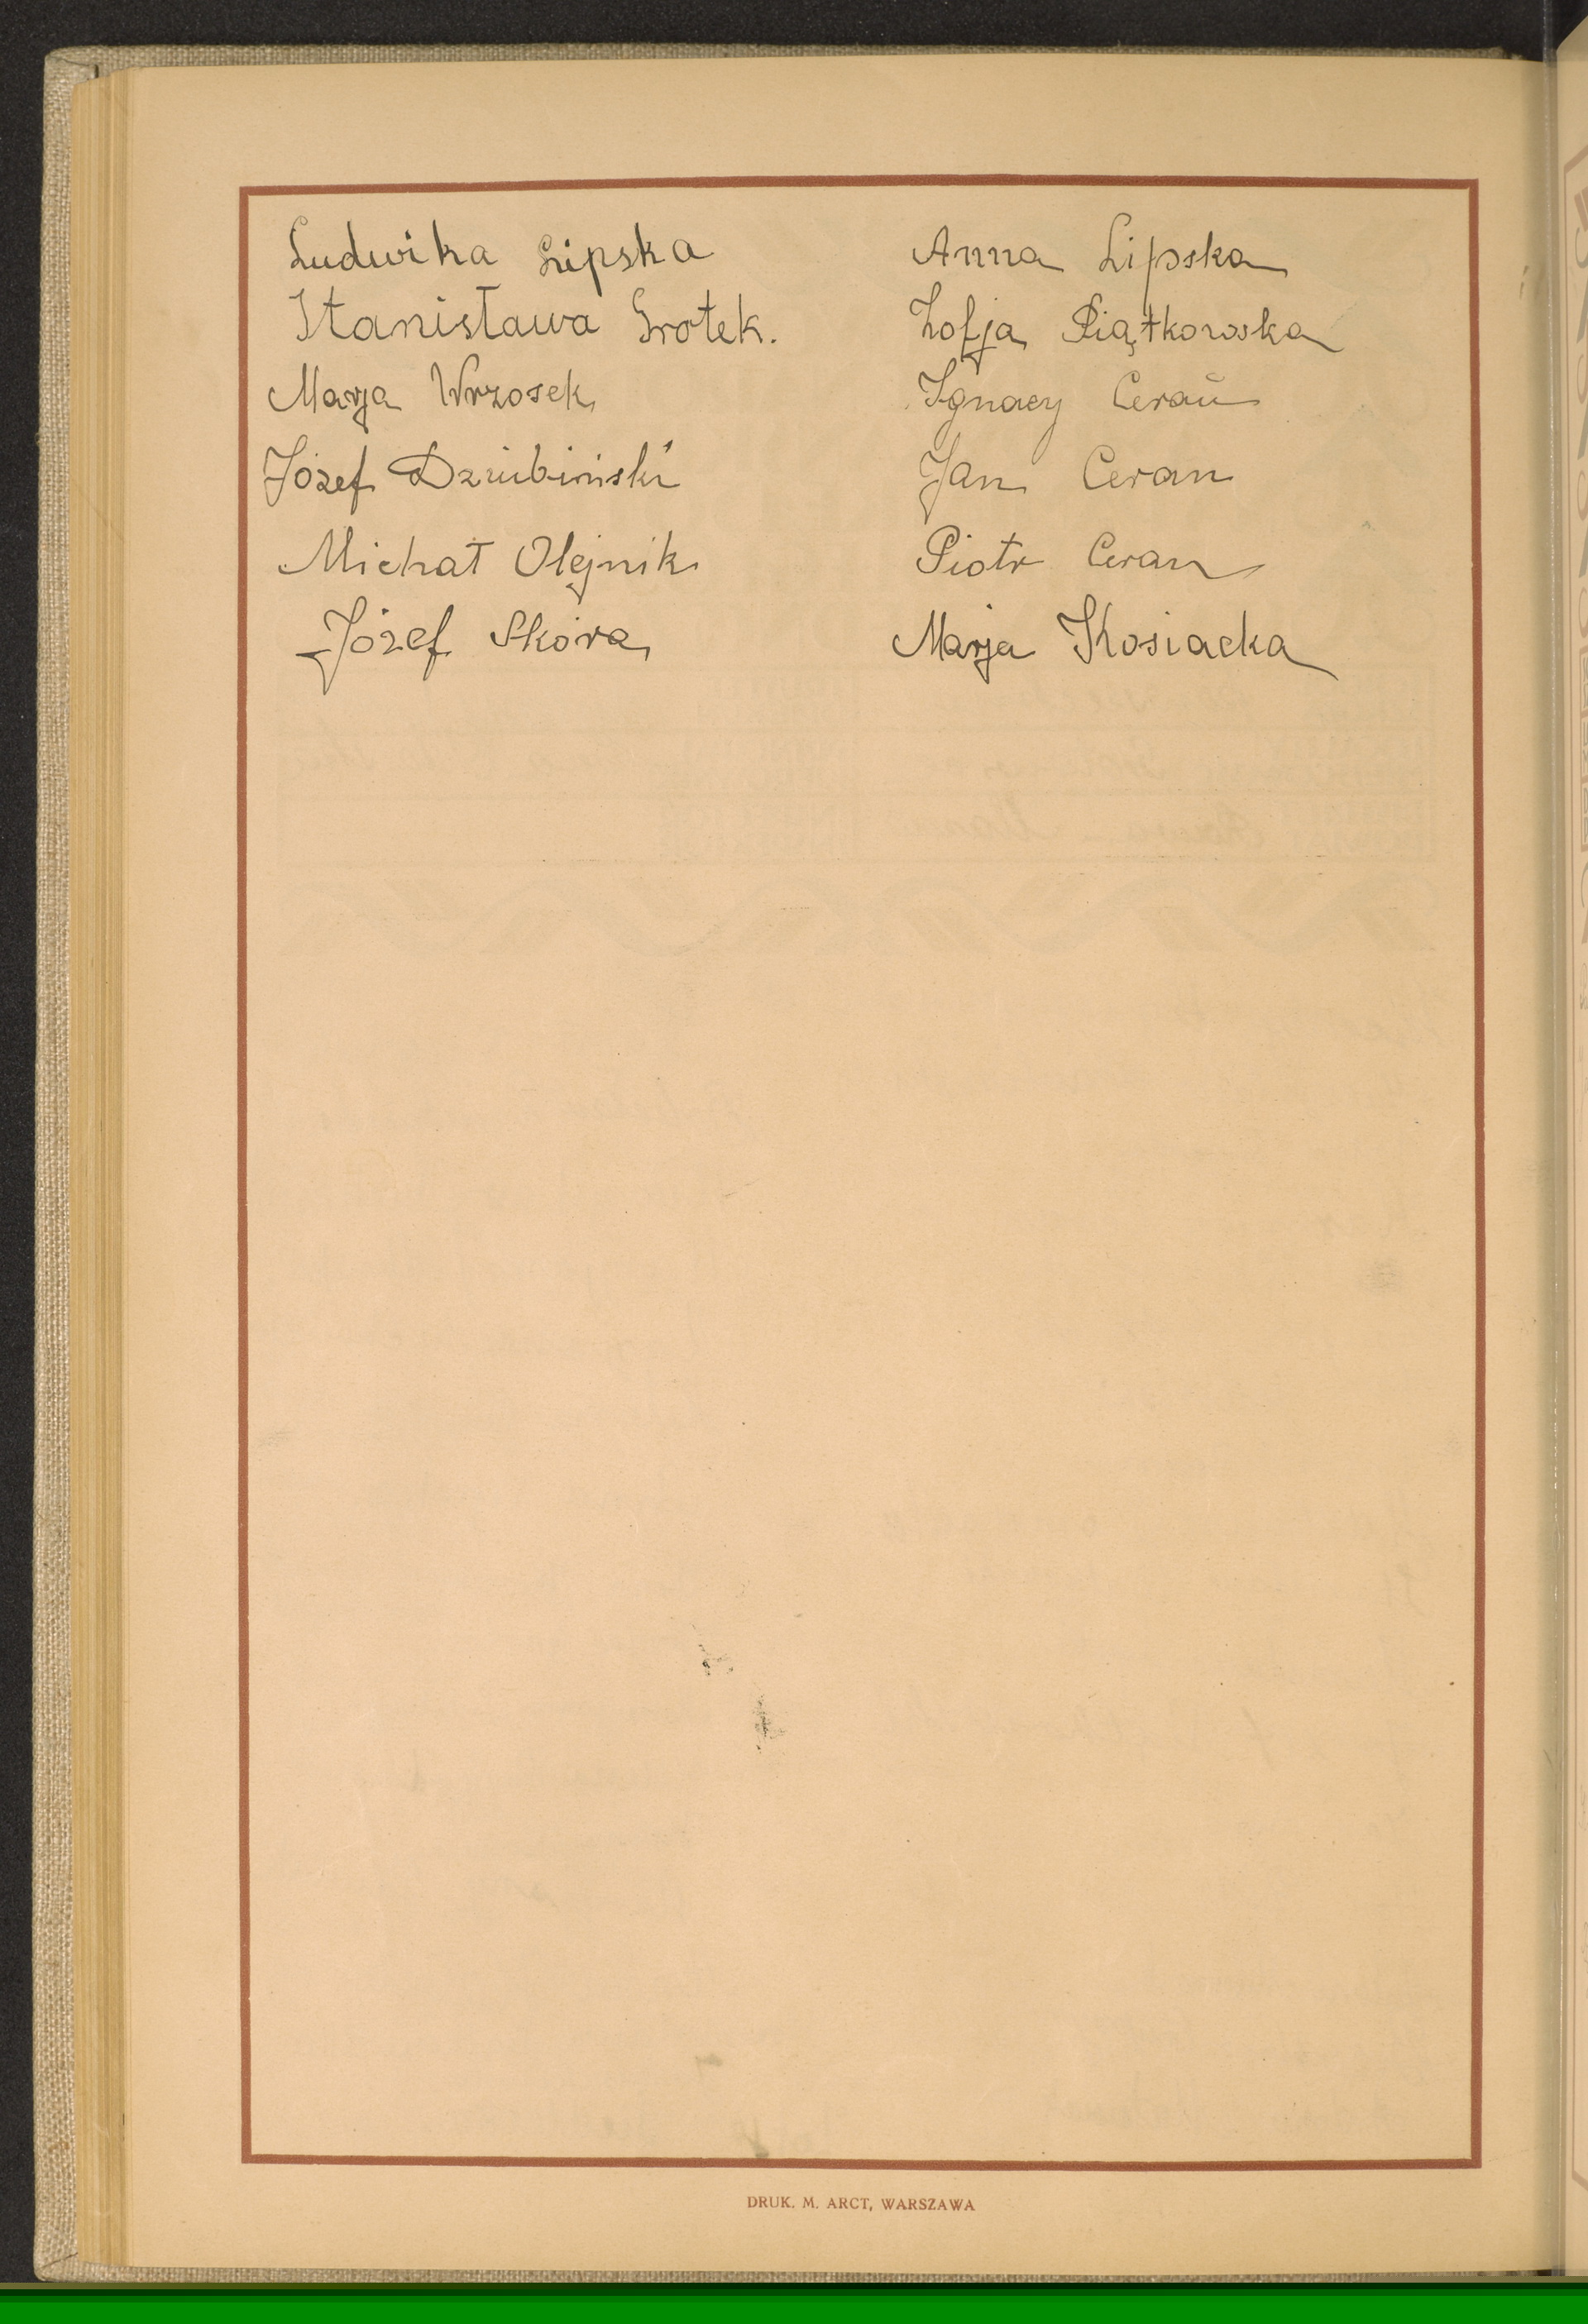 Ludwika Lipska
Stanisława Grotek.
Marja Wrzosek
Józef Dziubiński
Michał Olejnik
Józef Skóra
Anna Lipska
Zofja Piątkowska
Ignacy Ceran
Jan Ceran
Piotr Ceran
Marja Kosiacka
DRUK. M. ARCT, WARSZAWA